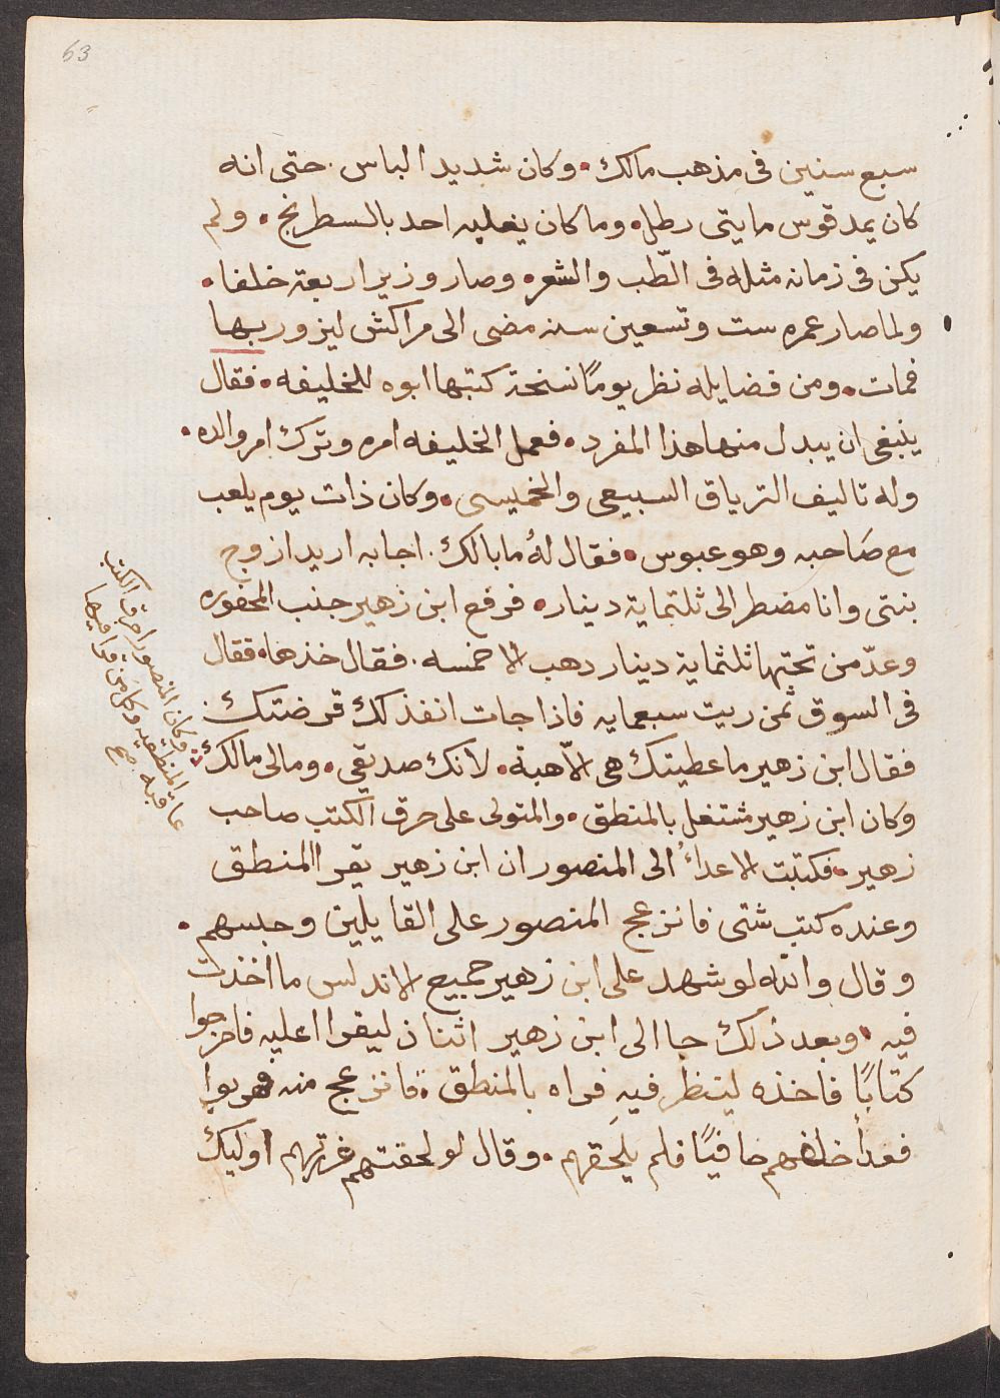 63
سبع سنين فى مذهب مالك. وكان شديد الباس. حتى انه
كان يمد قوس مايتى رطل. وما كان يغلبه احد بالسطرنج. ولم
يكن فى زمانه مثله فى الطّب والشعر. وصار وزير اربعة خلفا.
ولما صار عمره ست وتسعين سنه مضى الى مراكش ليزور بها
فمات. ومن فضايله نظر يومًا نسخة كتبها ابوه للخليفه. فقال
ينبغى ان يبدل منها هذا المفرد. فعمل الخليفه امره وترك امر والده.
وله تاليف الترياق السبيعى والخميسى. وكان ذات يوم يلعب
مع صَاحبه وهو عبوس. فقال لهُ ما بالك. اجابه اريد ازوج
بنتى وانا مضطر الى ثلتماية دينار. فرفع ابن زهير جنب المحفوره
وعدّ من تحتها ثلثماية دينار دهب الا خمسه. فقال خذها. فقال
فى السوق ثمن زيت سبعمايه فاذا جات انفذ لك قرضتك.
فقال ابن زهير ما عطيتك هى الّا هبة. لانك صديقى. ومالى مالك
وكان ابن زهير مشتغل بالمنطق. والمتولى على حرق الكتب صاحب
زهير. فكتبت الاعداءُ الى المنصور ان ابن زهير يقرا المنطق
وعنده كتب شتى فانزعج المنصور على القايلين وحبسهم.
وقال والله لو شهد على ابن زهير جميع الاندلس ما اخذت
فيه. وبعد ذلك جا الى ابن زهير اثنان ليقرا اعليه فاخرجوا
كتابًا فاخذه لينظر فيه فراه بالمنطق. فانزعج منه فهربوا
فعدأ خلفهم حافيًا فلم يلَحقهم. وقال لو لحقتهم غرتهم اوليك
وكان المنصور احرق الكتب
المنطقيه وكل من قرا فيها
عاقبه صح